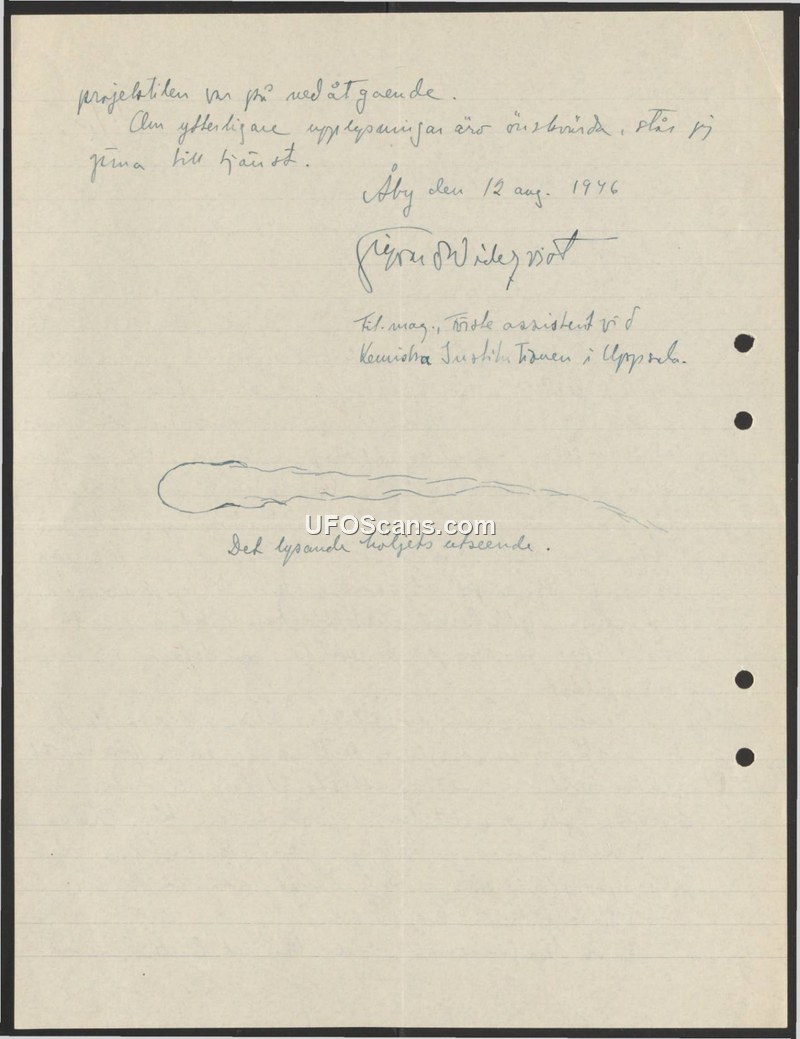 projektilen var på nedåtgående.
Om ytterligare upplysningar äro önskvärda, står jag
gärna till tjänst.
Åby den 12 aug. 1946
Wideqvist
Fil. mag., Förste assistent vid
Kemiska Institutionen i Uppsala.
UFOScans.com
Det lysande höljets utseende.